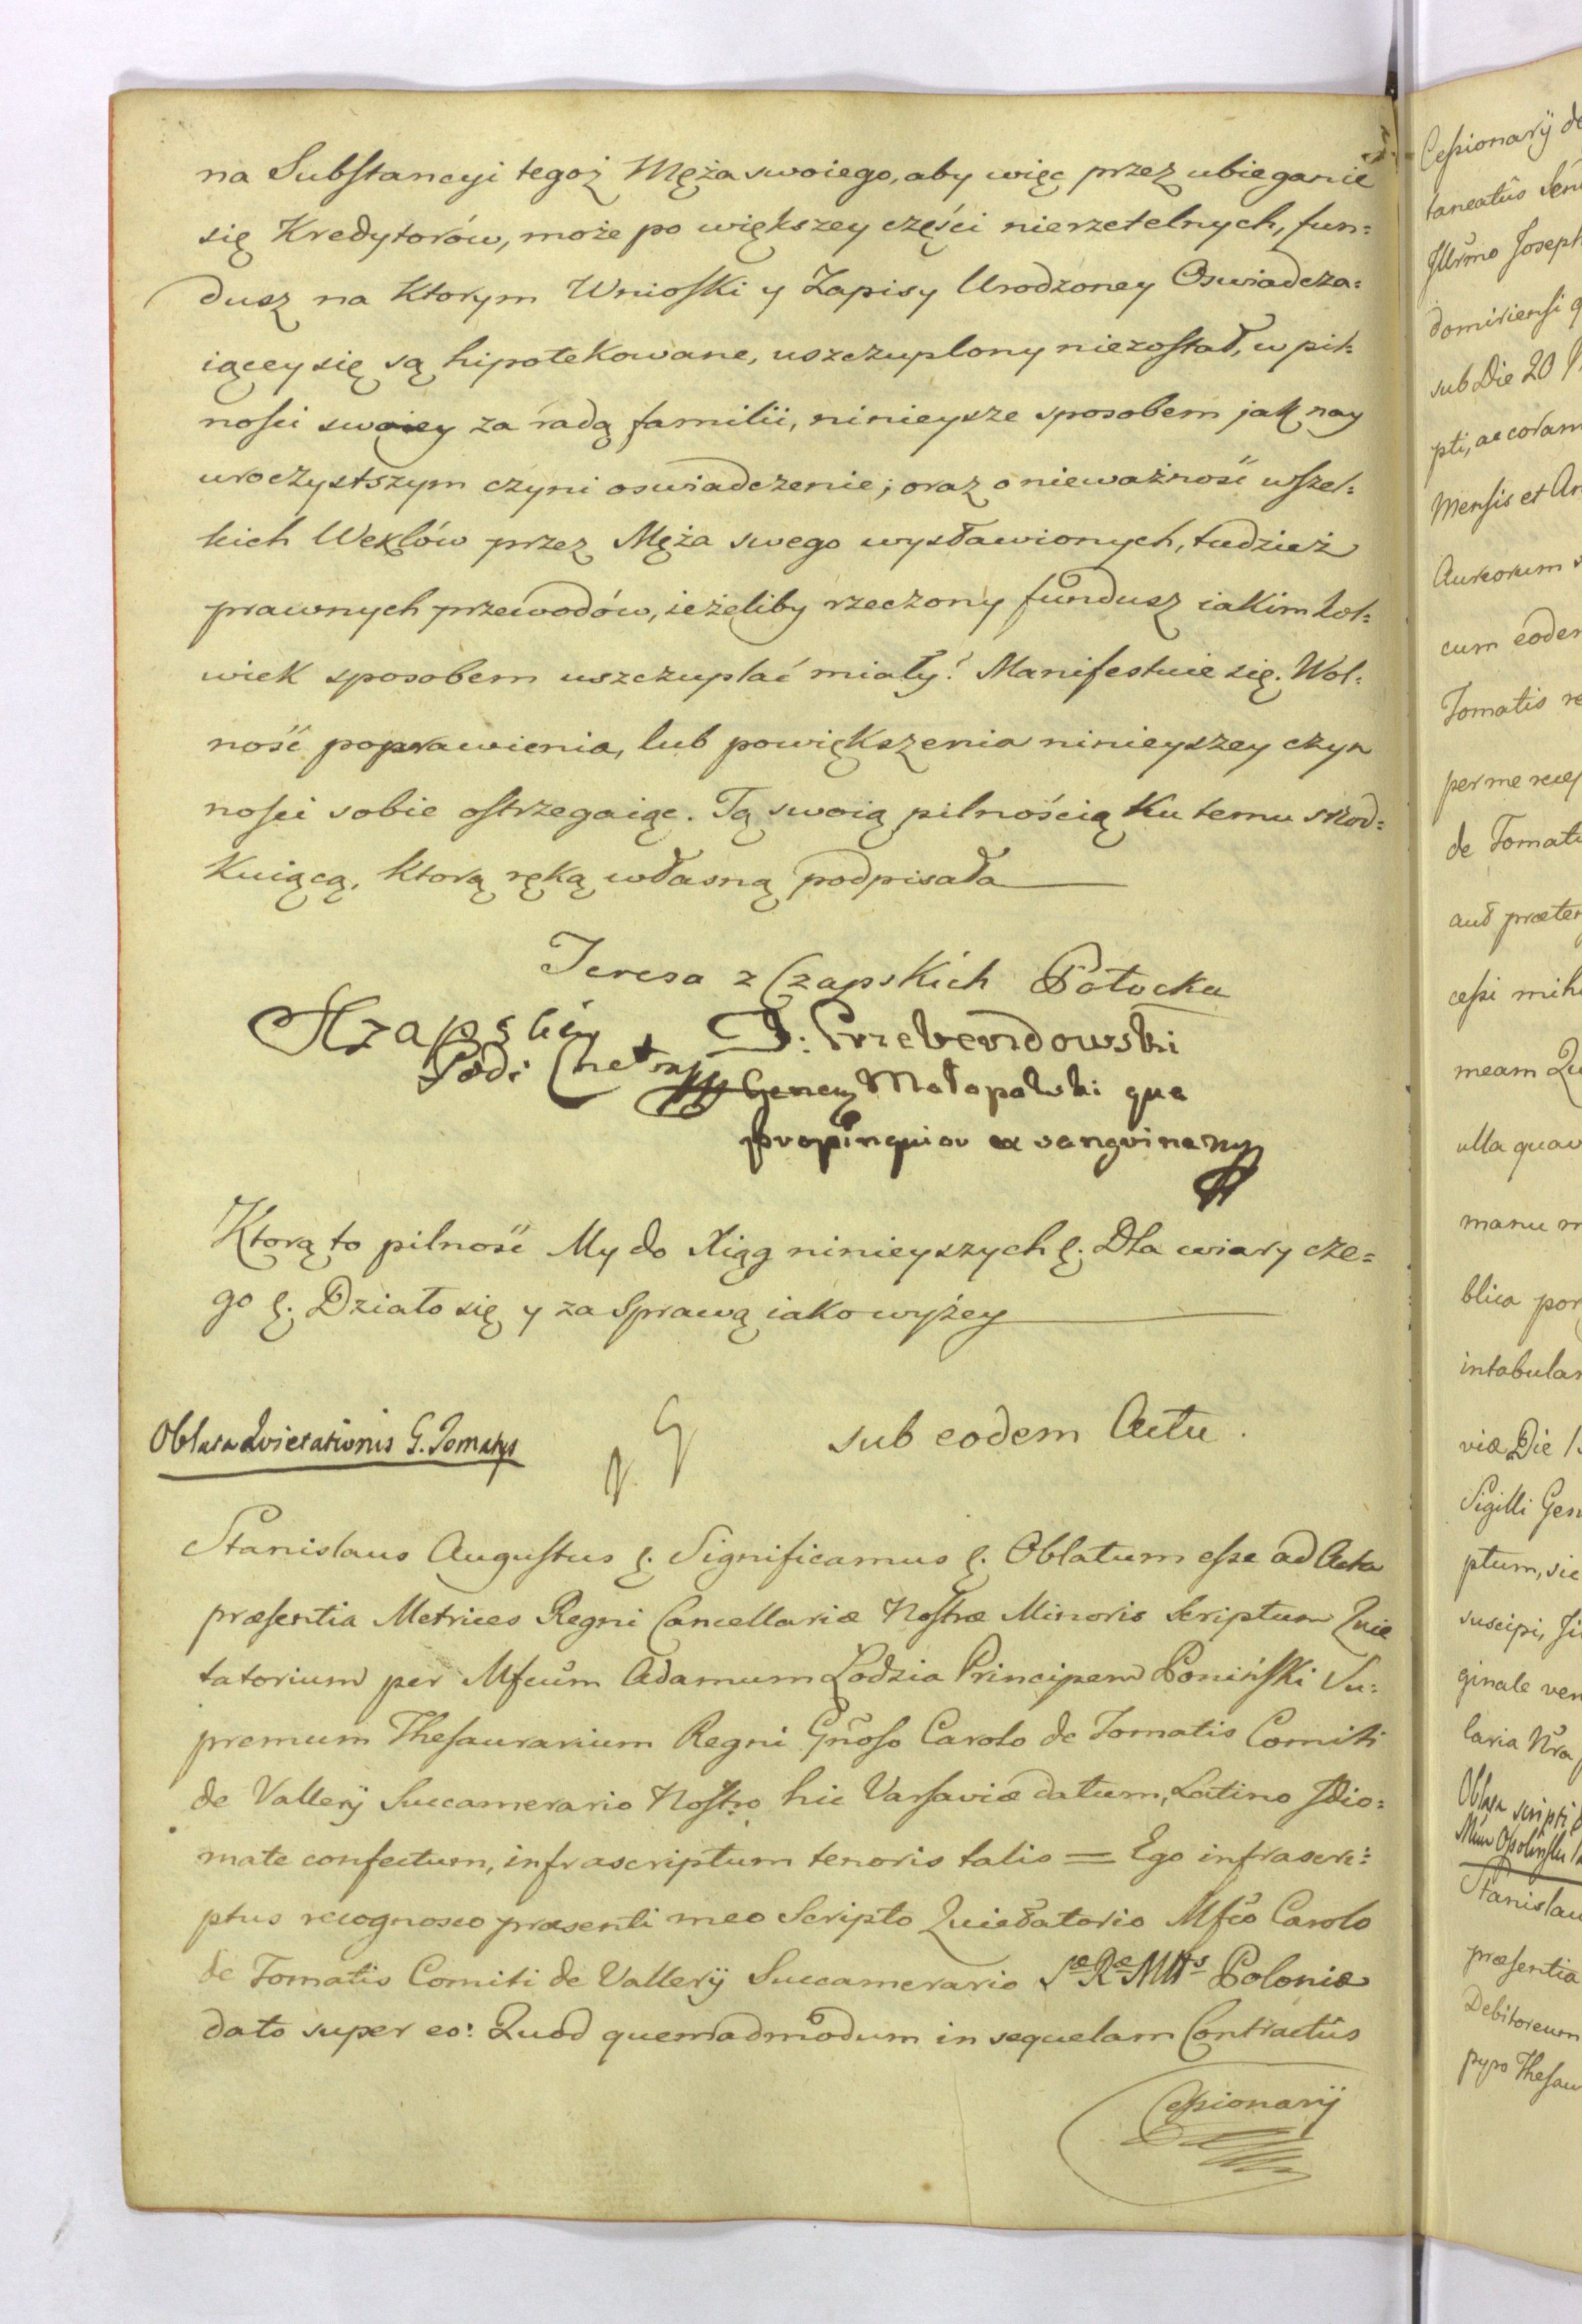 na Substancyi tegoż Męża swoiego, aby więc przez ubieganie
się Kredytorów, może po większey części nierzetelnych, fun=
dusz na ktorym Wnioski y Zapisy Urodzoney Oswiadcza=
iącey się są hipotekowane, uszczuplony niezostał, w pil=
ności swoiey za radą familii, ninieysze sposobem jak nay
uroczystszym czyni oswiadczenie; oraz o nieważność wszel=
kich Wexlów przez Męża swego wystawionych, tudzież
prawnych przewodów, ieżeliby rzeczony fundusz iakimkol=
wiek sposobem uszczuplać miały! Manifestuie się. Wol=
ność poprawienia, lub powiększenia ninieyszey czyn
ności sobie ostrzegaiąc. Tą swoią pilnością ku temu skod=
kuiącą, ktorą ręką własną podpisała
Teresa z Czapskich Potocka
Czapski
J: Przebendowski
Podi Chełm
Genez Małopolski qua
propinquior ex sanguine
Ktorą to pilność My do Xiąg ninieyszych &. Dla wiary cze=
go &. Działo się y za Sprawą iako wyżey
Oblata Quietationis G. Tomatys
sub eodem Actu.
Stanislaus Augustus &. Significamus &. Oblatum esse ad Acta
præsentia Metrices Regni Cancellariæ Nostræ Minoris Scriptum Quie
tatorium per Mfcũm Adamum Lodzia Principem Poniński Su=
premum Thesaurarium Regni Gñoso Carolo de Tomatis Comiti
de Vallerÿ Succamerario Nostro hic Varsaviæ datum, Latino Idio=
mate confectum, infrascriptum tenoris talis = Ego infrascri=
ptus recognosco præsenti meo Scripto Quietatorio Mfco Carolo
de Tomatis Comiti de Vallerÿ Succamerario Sæ Ræ Mttis Poloniæ
dato super eo: Quod quemadmodum in sequelam Contractûs
Cessionarÿ
Cessionarÿ
taneatûs
Illrmo Joseph
domiriensi
sub Die 20
pti, ac coram
Mensis et
Aureorum
cum eodem
Tomatis
per me
de Tomati
aut præter
cessi mihi
meam
ulla
manu
blica
intabular
viæ Die
Sigilli Gen
ptum, sic
suscipi,
ginale
laria Nra
Oblata scripti
Stanislau
præsentia
Debitoreum